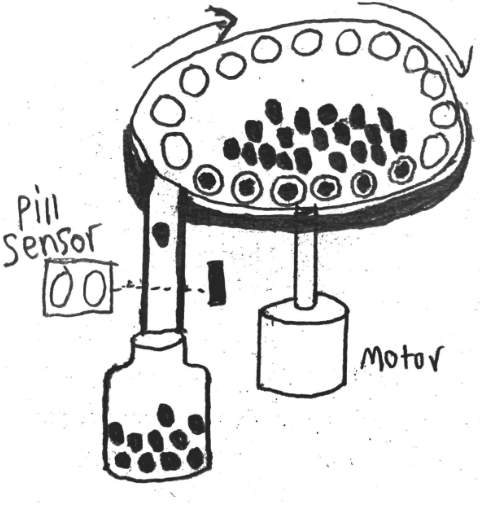 Pill
Sensor
Motor